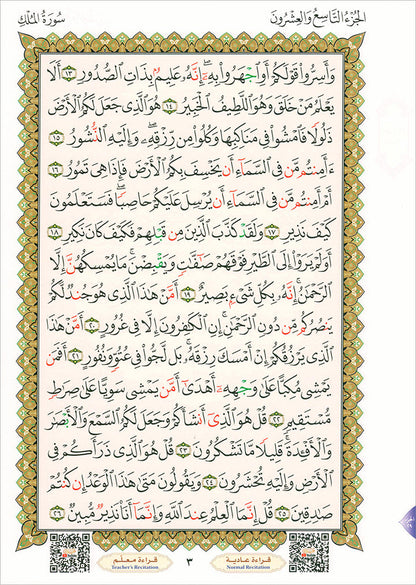 الجزء التاسع والعشرون
سورة الملك
وَأَسِرُّوا۟ قَوْلَكُمْ أَوِ ٱجْهَرُوا۟ بِهِۦٓ ۖ إِنَّهُۥ عَلِيمٌۢ بِذَاتِ ٱلصُّدُورِ ١٣ أَلَا
يَعْلَمُ مَنْ خَلَقَ وَهُوَ ٱللَّطِيفُ ٱلْخَبِيرُ ١٤ هُوَ ٱلَّذِى جَعَلَ لَكُمُ ٱلْأَرْضَ
ذَلُولًا فَٱمْشُوا۟ فِى مَنَاكِبِهَا وَكُلُوا۟ مِن رِّزْقِهِۦ ۖ وَإِلَيْهِ ٱلنُّشُورُ ١٥
ءَأَمِنتُم مَّن فِى ٱلسَّمَآءِ أَن يَخْسِفَ بِكُمُ ٱلْأَرْضَ فَإِذَا هِىَ تَمُورُ ١٦
أَمْ أَمِنتُم مَّن فِى ٱلسَّمَآءِ أَن يُرْسِلَ عَلَيْكُمْ حَاصِبًا ۖ فَسَتَعْلَمُونَ
كَيْفَ نَذِيرِ ١٧ وَلَقَدْ كَذَّبَ ٱلَّذِينَ مِن قَبْلِهِمْ فَكَيْفَ كَانَ نَكِيرِ ١٨
أَوَلَمْ يَرَوْا۟ إِلَى ٱلطَّيْرِ فَوْقَهُمْ صَٰٓفَّٰتٍ وَيَقْبِضْنَ ۚ مَا يُمْسِكُهُنَّ إِلَّا
ٱلرَّحْمَٰنُ ۚ إِنَّهُۥ بِكُلِّ شَىْءٍۭ بَصِيرٌ ١٩ أَمَّنْ هَٰذَا ٱلَّذِى هُوَ جُندٌ لَّكُمْ
يَنصُرُكُم مِّن دُونِ ٱلرَّحْمَٰنِ ۚ إِنِ ٱلْكَٰفِرُونَ إِلَّا فِى غُرُورٍ ٢٠ أَمَّنْ هَٰذَا
ٱلَّذِى يَرْزُقُكُمْ إِنْ أَمْسَكَ رِزْقَهُۥ ۚ بَل لَّجُّوا۟ فِى عُتُوٍّ وَنُفُورٍ ٢١ أَفَمَن
يَمْشِى مُكِبًّا عَلَىٰ وَجْهِهِۦٓ أَهْدَىٰٓ أَمَّن يَمْشِى سَوِيًّا عَلَىٰ صِرَٰطٍ
مُّسْتَقِيمٍ ٢٢ قُلْ هُوَ ٱلَّذِىٓ أَنشَأَكُمْ وَجَعَلَ لَكُمُ ٱلسَّمْعَ وَٱلْأَبْصَٰرَ
وَٱلْأَفْـِٔدَةَ ۖ قَلِيلًا مَّا تَشْكُرُونَ ٢٣ قُلْ هُوَ ٱلَّذِى ذَرَأَكُمْ فِى
ٱلْأَرْضِ وَإِلَيْهِ تُحْشَرُونَ ٢٤ وَيَقُولُونَ مَتَىٰ هَٰذَا ٱلْوَعْدُ إِن كُنتُمْ
صَٰدِقِينَ ٢٥ قُلْ إِنَّمَا ٱلْعِلْمُ عِندَ ٱللَّهِ وَإِنَّمَآ أَنَا۠ نَذِيرٌ مُّبِينٌ ٢٦
قراءة معلم
Teacher's Recitation
٣
قراءة عادية
Normal Recitation